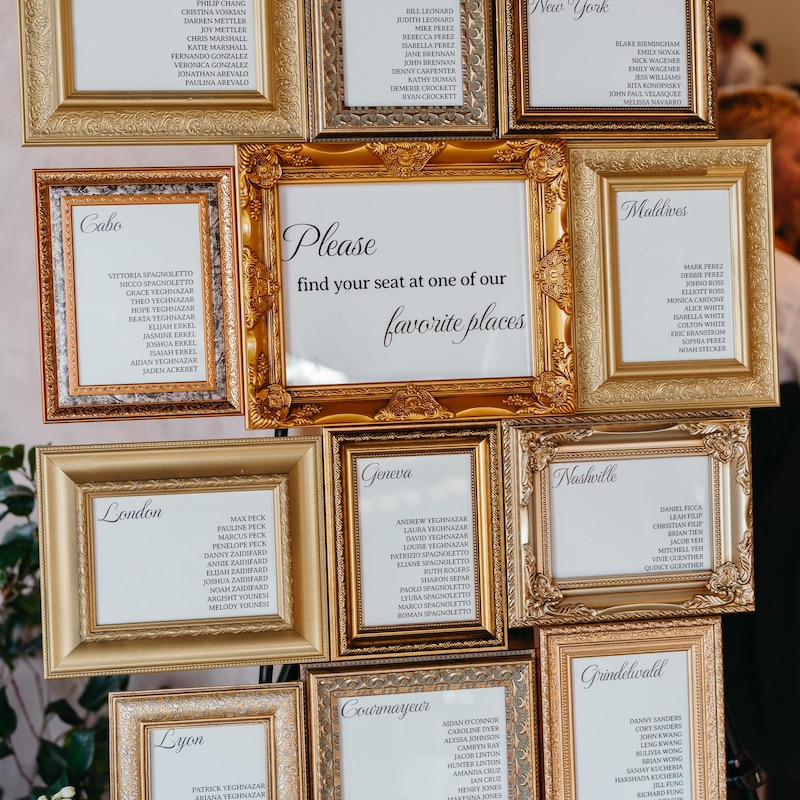 PHILIP CHANG
CRISTINA VOSKIAN
DARREN METTLER
JOY METTLER
CHRIS MARSHALL
KATIE MARSHALL
FERNANDO GONZALEZ
VERONICA GONZALEZ
JONATHAN AREVALO
PAULINA AREVALO
BILL LEONARD
JUDITH LEONARD
MIKE PEREZ
REBECCA PEREZ
ISABELLA PEREZ
JANE BRENNAN
JOHN BRENNAN
DENNY CARPENTER
KATHY DUMAS
DEMERIE CROCKETT
RYAN CROCKET
New York
BLAKE BIRMINGHAM
EMILY NOVAK
NICK WAGENER
EMILY WAGENER
JESS WILLIAMS
RITA KONOPASKY
JOHN PAUL VELASQUEZ
MELISSA NAVARRO
Cabo
VITTORIA SPAGNOLETTO
NICCO SPAGNOLETTO
GRACE YEGHNAZAR
THEO YEGHNAZAR
HOPE YEGHNAZAR
BEATA YEGHNAZAR
ELIJAH ERKEL
JASMINE ERKEL
JOSHUA ERKEL
ISAIAH ERKEL
AIDAN YEGHNAZAR
JADEN ACKERET
Please
find your seat at one of our
favorite places
Maldives
MARK PEREZ
DEBBIE PEREZ
JOHNO ROSS
ELLIOTT ROSS
MONICA CARDONE
ALICE WHITE
ISABELLA WHITE
COLTON WHITE
ERIC BRANSTROM
SOPHIA PEREZ
NOAH STECKER
London
MAX PECK
PAULINE PECK
MARCUS PECK
PENELOPE PECK
DANNY ZAIDIFARD
ANNIE ZAIDIFARD
ELIJAH ZAIDIFARD
JOSHUA ZAIDIFARD
NOAH ZAIDIFARD
ARGISHT YOUNESI
MELODY YOUNESI
Geneva
ANDREW YEGHNAZAR
LAURA YEGHNAZAR
DAVID YEGHNAZAR
LOUISE YEGHNAZAR
PATRIZIO SPAGNOLETTO
ELIANE SPAGNOLETTO
RUTH ROGERS
SHARON SEPAR
PAOLO SPAGNOLETTO
LYUBA SPAGNOLETTO
MARCO SPAGNOLETTO
ROMAN SPAGNOLETTO
Nashville
DANIEL FICCA
LEAH FILIP
CHRISTIAN FILIP
BRIAN TIEN
JACOB YEH
MITCHELL YEH
VIVIE GUENTHER
QUINCY GUENTHER
Lyon
PATRICK YEGHNAZAR
ARIANA YEGHNAZAR
Courmayeur
AIDAN O'CONNOR
CAROLINE DYER
ALYSSA JOHNSON
CAMRYN RAY
JACOB LINTON
HUNTER LINTON
AMANDA CRUZ
IAN CRUZ
HENRY JONES
MAKENNA JONES
Grindelwald
DANNY SANDERS
CORY SANDERS
JOHN KWANG
LENG KWANG
RULIVIA WONG
BRIAN WONG
SANJAY KUCHERIA
HARSHADA KUCHERIA
JILL FUNG
RICHARD FUNG